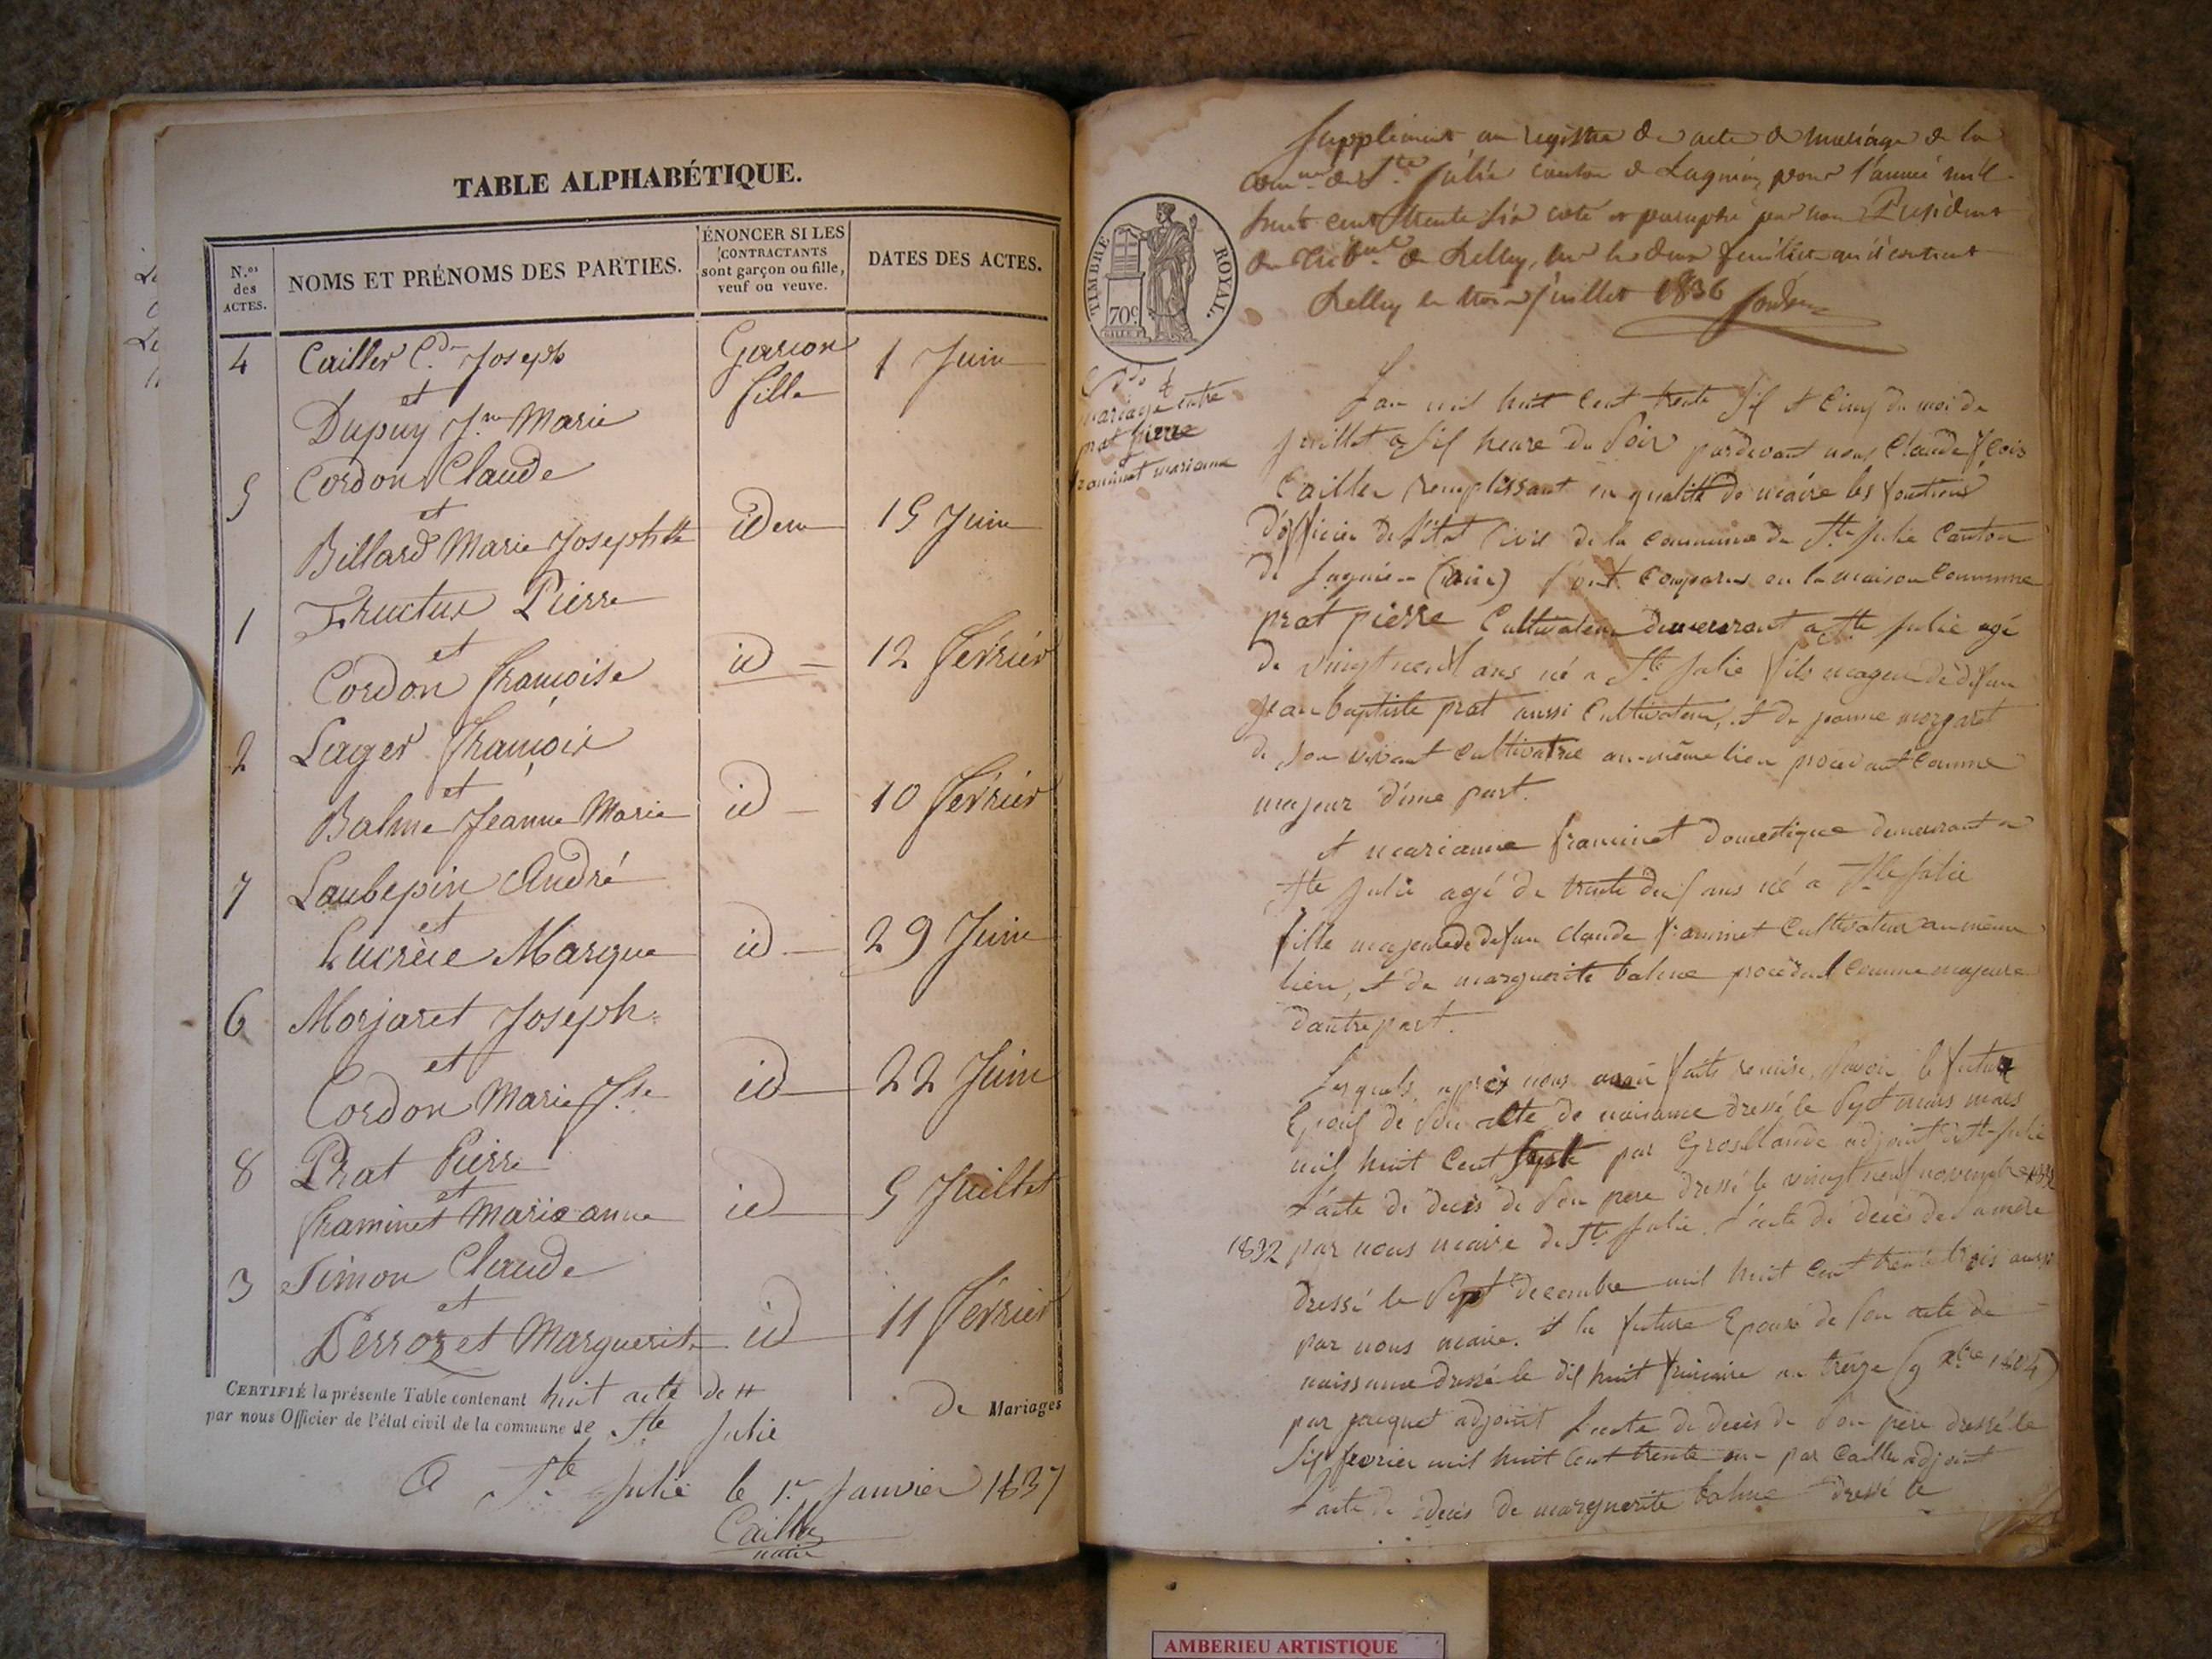 TABLE ALPHABÉTIQUE.
N.os des ACTES.
NOMS ET PRÉNOMS DES PARTIES.
ÉNONCER SI LES CONTRACTANTS sont garçon ou fille, veuf ou veuve.
DATES DES ACTES.
4 Cailler C.de Joseph Garcon 1 Juin
et fille
Dupuy J.ne Marie
5 Cordon Claude
et idem 15 Juin
Billard Marie Josephte
1 Fructus Pierre
et id 12 février
Cordon françoise
2 Lager françois
et id 10 février
Balme Jeanne Marie
7 Laubepin André
et id 29 Juin
Lucrèce Marque
6 Morjaret Joseph
et id 22 Juin
Cordon Marie J.te
8 Prat Pierre
et id 5 Juillet
framinet Marieanne
3 Simon Claude
et id 11 février
Perrozet Marguerite
CERTIFIÉ la présente Table contenant huit acte de
de Mariages
par nous Officier de l'état civil de la commune de Ste Julie
A Ste Julie le 1.er Janvier 1837
Cailler
maire
Supplément au registre de acte de mariage de la
com.ne de Ste Julie canton de Lagnieu pour l'année mil
huit cent trente six coté et paraphé par nous Président
du Trib.nal de Belley, sur les deux feuillets qu'il contient
Belley le trois juillet 1836
TIMBRE ROYAL.
70c.
mariage entre
prat pierre
framinet marianne
Lan mil huit cent trente six et cinq du moi de
juillet a six heure du soir pardevant nous Claude fcois
Cailler remplissant en qualité de maire les fontions
d'officier de l'état civil de la commune de Ste Julie Canton
de Lagnieu (ain) sont comparus en la maison commune
prat pierre Cultivateur demeurant a Ste Julie agé
de vingt neuf ans né a Ste Julie fils mageur de défun
jean baptiste prat aussi Cultivateur, et de jeanne morjaret
de son vivant cultivatrice au même lieu procedant comme
majeur d'une part.
et marianne framinet domestique demeurant a
Ste Julie agé de trente deux ans né a Ste Julie
fille majeure de defun claude framinet Cultivateur au même
lieu, et de marguerite balme procédant comme majeure
dautre part.
Lesquels après nous avoir faits remise, savoir le futur
Epoux de son acte de naissance dressé le sept mars
mil huit cent sept par Gros Claude adjoint de Ste Julie
l'acte de deces de son pere dressé le vingt neuf novembre
1832 par nous maire de Ste Julie. l'acte de décès de sa mere
dressé le sept decembre mil huit cent trente trois aussi
par nous maire. et la future Epouse de son acte de
naissance dressé le dix huit frimaire an treize (9 Xbre 1804)
par jacquet adjoint l'acte de décès de son père dressé le
six fevrier mil huit cent trente un par Cailler adjoint
l'acte de décès de marguerite balme dressé le
AMBERIEU ARTISTIQUE